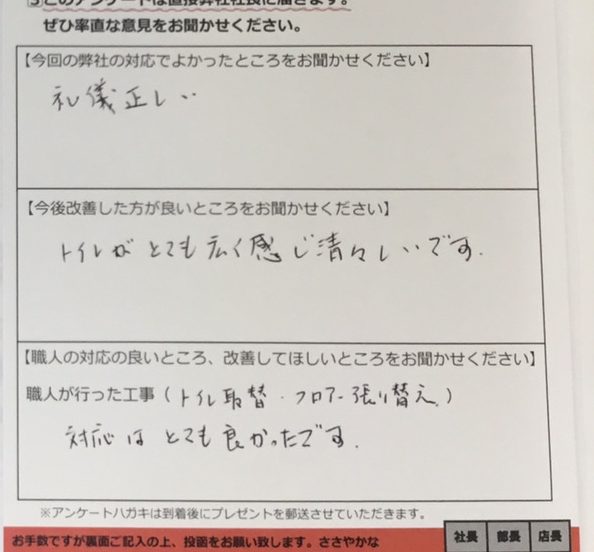 ③このアンケートは直接弊社社長に届きます。
ぜひ率直な意見をお聞かせください。
【今回の弊社の対応でよかったところをお聞かせください】
礼儀正しい
【今後改善した方が良いところをお聞かせください】
トイレがとても広く感じ清々しいです.
【職人の対応の良いところ、改善してほしいところをお聞かせください】
職人が行った工事(トイレ取替・フロアー張り替え)
対応はとても良かったです.
※アンケートハガキは到着後にプレゼントを郵送させていただきます。
お手数ですが裏面ご記入の上、投函をお願い致します。ささやかな
社長 部長 店長